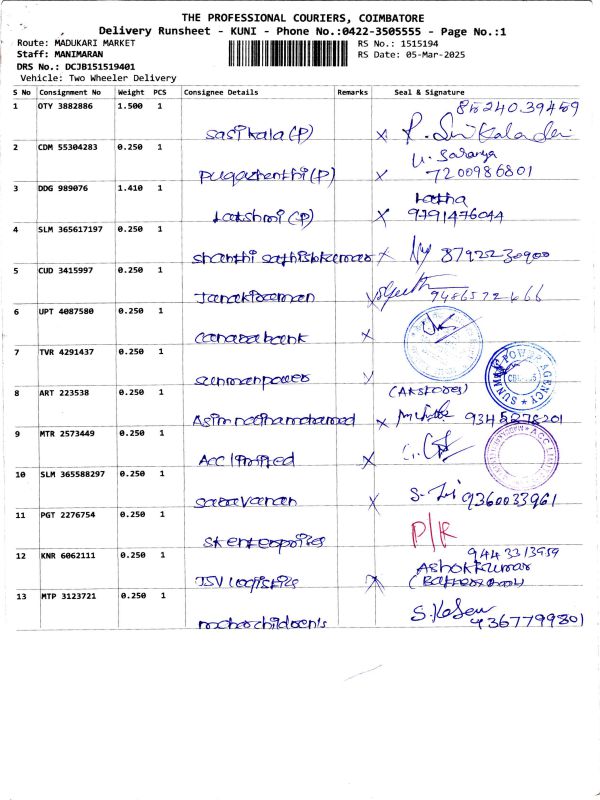 THE PROFESSIONAL COURIERS, COIMBATORE
Delivery Runsheet - KUNI - Phone No.:0422-3505555 - Page No.:1
Route: MADUKARI MARKET
RS No.: 1515194
Staff: MANIMARAN
RS Date: 05-Mar-2025
DRS No.: DCJB151519401
Vehicle: Two Wheeler Delivery
S No Consignment No Weight PCS Consignee Details Remarks Seal & Signature
1 OTY 3882886 1.500 1
sasikala (P) x
2 CDM 55304283 0.250 1
pugazhenthi (P) x 7200986801
3 DDG 989076 1.410 1
Latha
Lakshmi (P) x 9791476044
4 SLM 365617197 0.250 1
shanthi sathishkumar x
5 CUD 3415997 0.250 1
Janakiraman
6 UPT 4087580 0.250 1
canara bank x
7 TVR 4291437 0.250 1
sunmanpower
SUNMAN POWER AGENCY
8 ART 223538 0.250 1
(AKstores)
x
9 MTR 2573449 0.250 1
ACC limited x
10 SLM 365588297 0.250 1
saravanan x 9360033961
11 PGT 2276754 0.250 1
P/R
sk enterprises
12 KNR 6062111 0.250 1
9443313959
Ashokkumar
JSV Logistics
13 MTP 3123721 0.250 1
9367799801